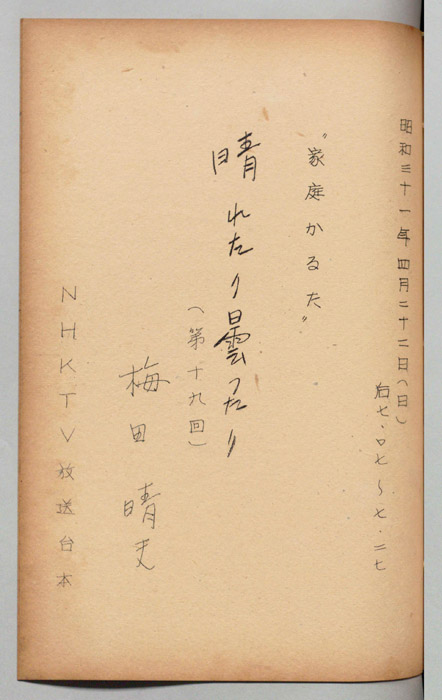 昭和三十一年四月二十二日(日)
后七・〇七〜七・二七
"家庭かるた"
晴れたり曇ったり
(第十九回)
梅田晴夫
NHKTV放送台本